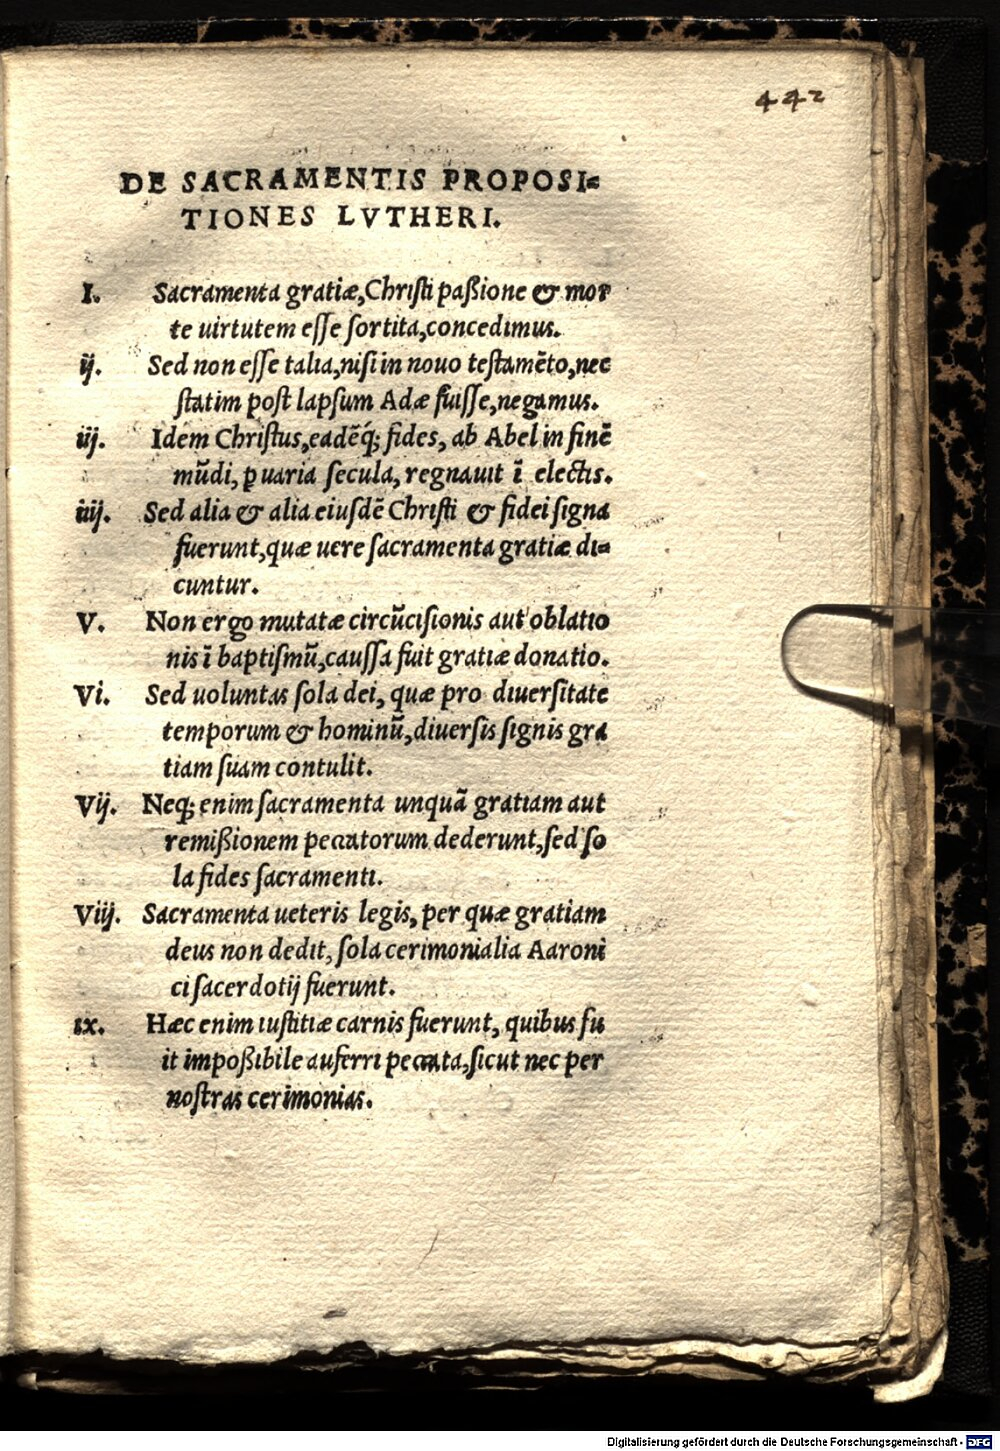 442
DE SACRAMENTIS PROPOSI=
TIONES LVTHERI.
I. Sacramenta gratiæ,Chriſti paßione & mor
te uirtutem eſſe ſortita,concedimus.
ij. Sed non eſſe talia,niſi in nouo teſtamēto,nec
ſtatim poſt lapſum Adæ fuiſſe,negamus.
iij. Idem Chriſtus,eadēq́; fides, ab Abel in finē
mūdi, ꝑ uaria ſecula, regnauit ī electis.
iiij. Sed alia & alia eiuſdē Chriſti & fidei ſigna
fuerunt,quæ uere ſacramenta gratiæ di=
cuntur.
V. Non ergo mutatæ circūciſionis aut oblatio
nis ī baptiſmū,cauſſa fuit gratiæ donatio.
Vi. Sed uoluntas ſola dei, quæ pro diuerſitate
temporum & hominū,diuerſis ſignis gra
tiam ſuam contulit.
Vij. Neq; enim ſacramenta unquā gratiam aut
remißionem peccatorum dederunt,ſed ſo
la fides ſacramenti.
Viij. Sacramenta ueteris legis, per quæ gratiam
deus non dedit, ſola cerimonialia Aaroni
ci ſacerdotij fuerunt.
ix. Hæc enim iuſtitiæ carnis fuerunt, quibus fu
it impoßibile auferri peccata,ſicut nec per
noſtras cerimonias.
Digitalisierung gefördert durch die Deutsche Forschungsgemeinschaft - DFG